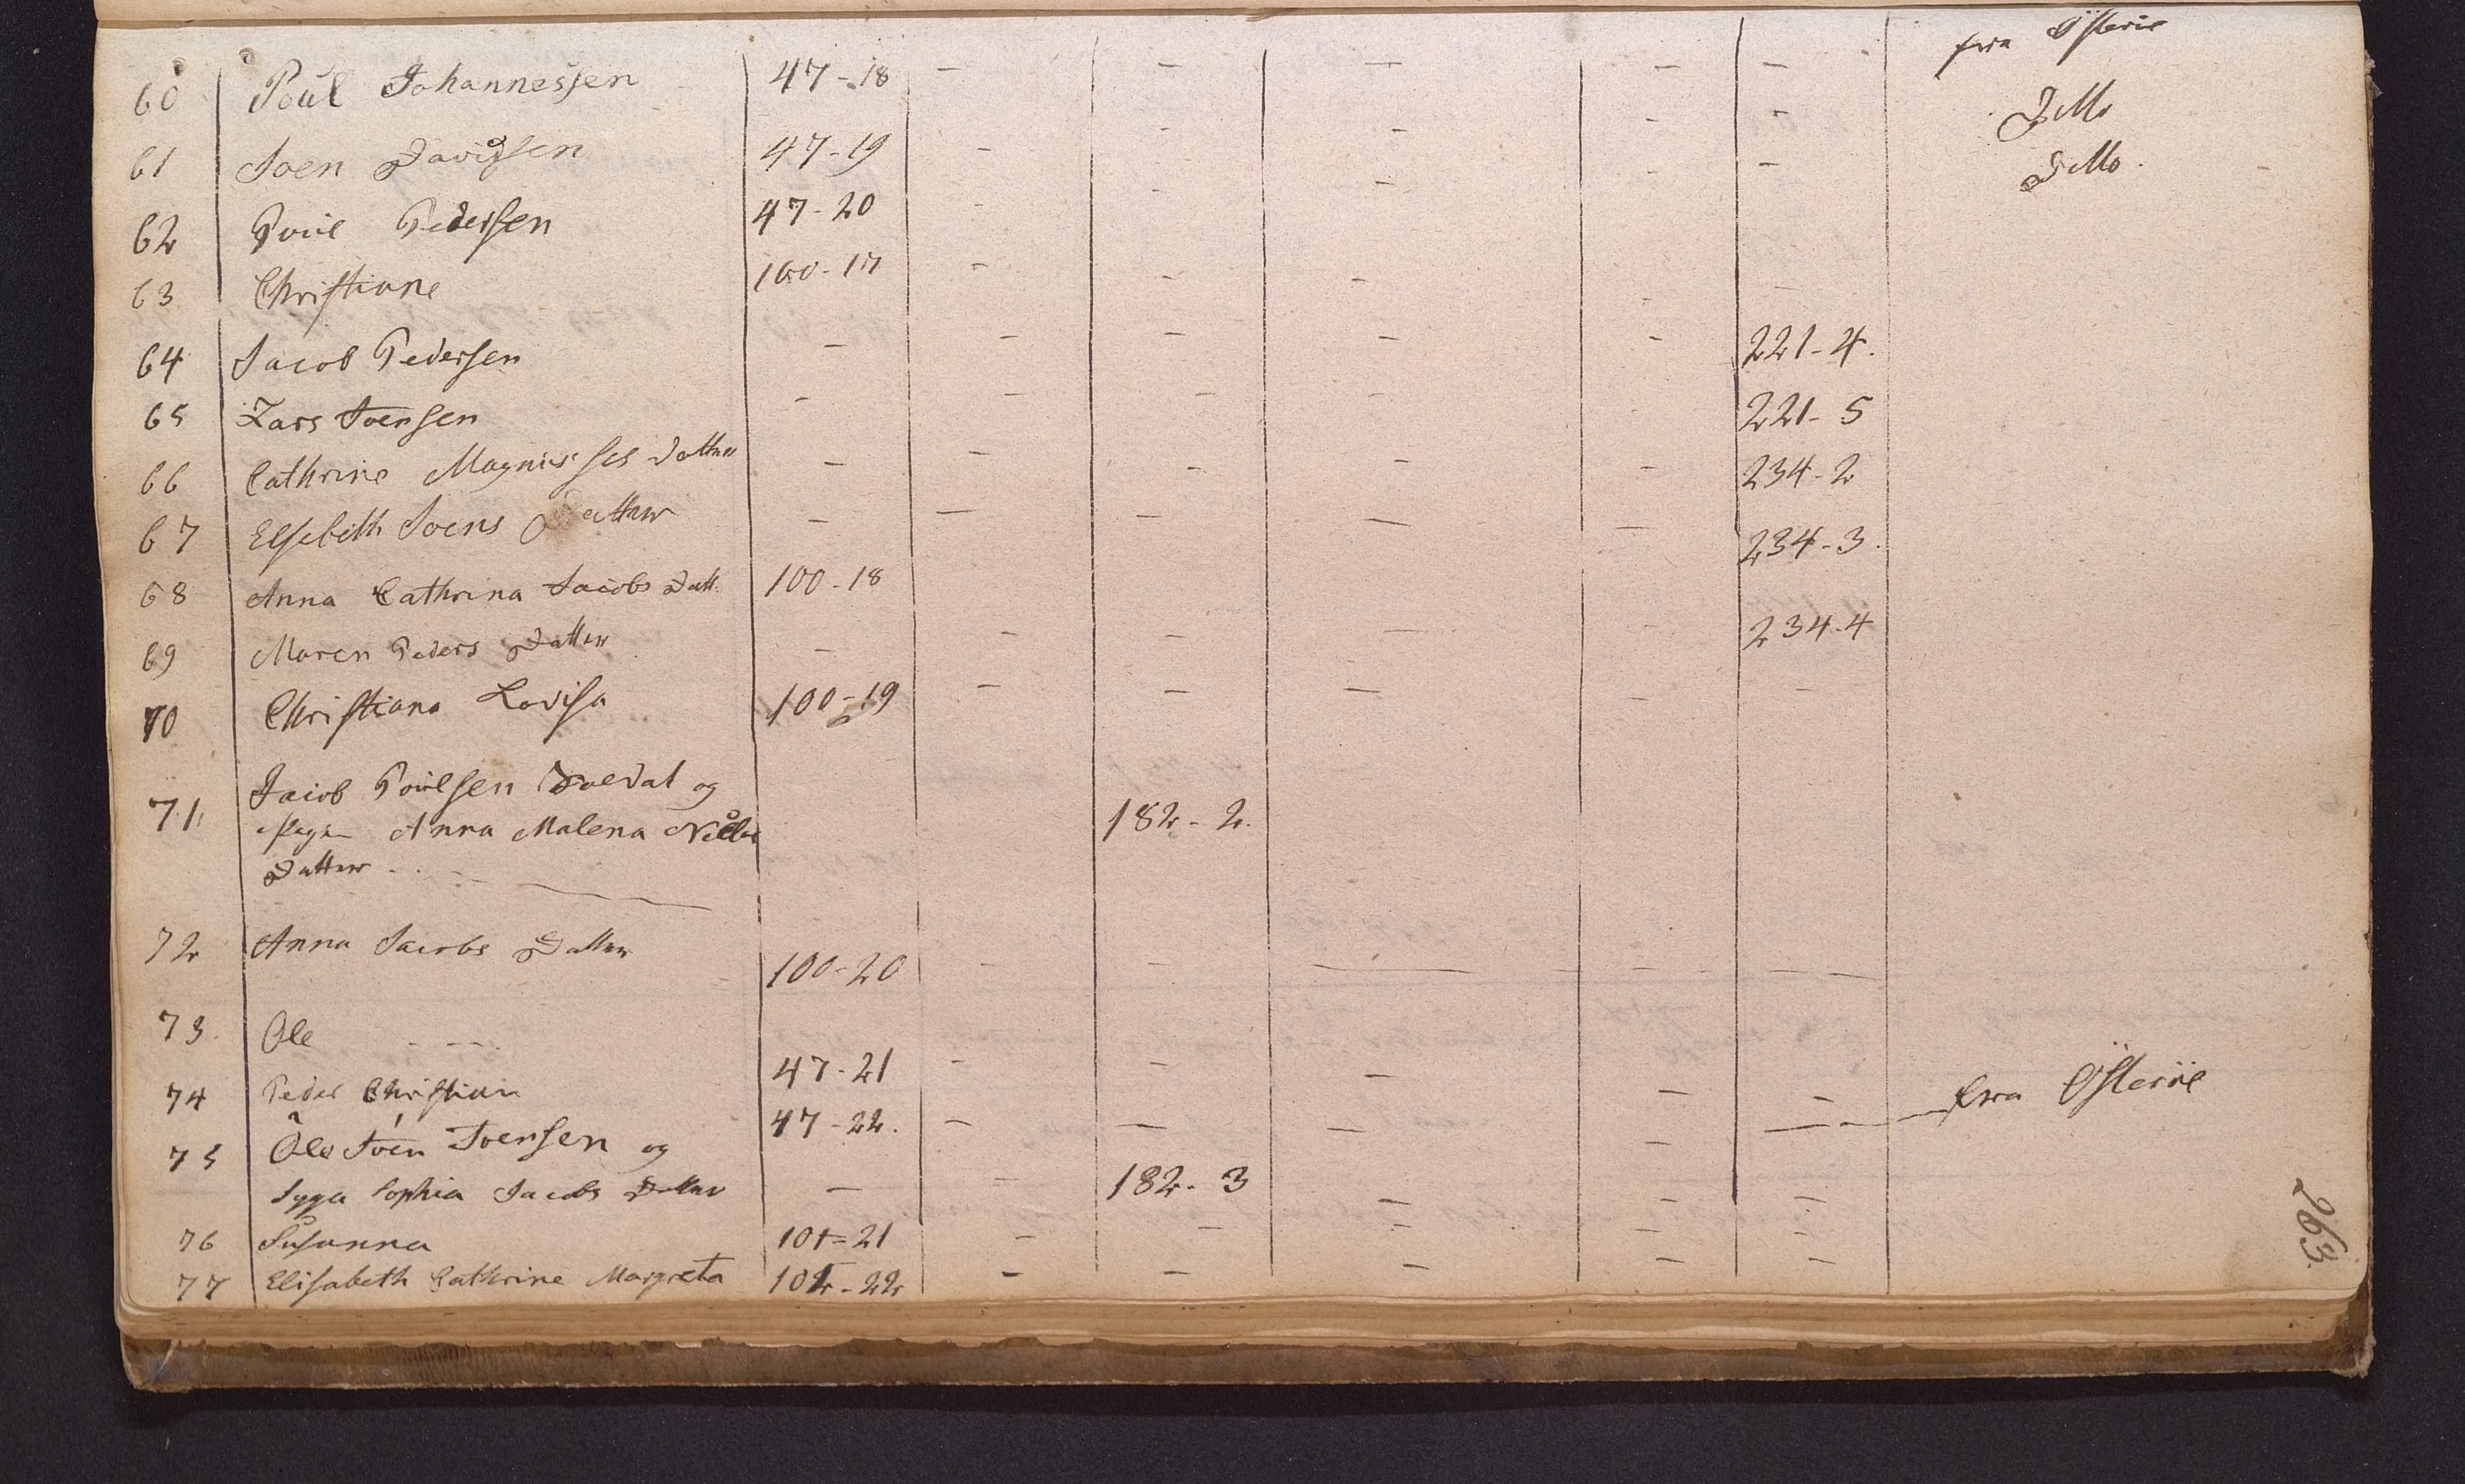 60 Poul Johannessen 47-18 — — — — — fra Østeröe
61 Joen Davidsen 47-19 — — — — — Ditto
62 Poul Pedersen 47-20 — — — — — Ditto
63 Christiane 100-17 — — — — —
64 Jacob Pedersen — — — — — 221-4.
65 Zars Joensen — — — — 221-5
66 Cathrine Magnusses Datter — — — — — 234-2
67 Elsebeth Joens Datter — — — — — 234-3.
68 Anna Cathrina Jacobs Datt. 100-18
69 Maren Peders Datter — — — — — 234-4
70 Christiana Lovisa 100-19 — — — — —
71. Jacob Poulsen og 182-2.
Anna Malena Niels
Datter
72 Anna Jacobs Datter 100-20 — — — — —
73. Ole - - - 47-21 — — — — —
74 Peder Christian 47-22. — — — — — fra Østeröe
75 Ole Joen Joensen og
Sophia Jacobs Datter — — 182-3 — — —
76 Susanna 101=21 — — — — —
77 Elisabeth Cathrine Margreta 101-22 — — — — —
263.